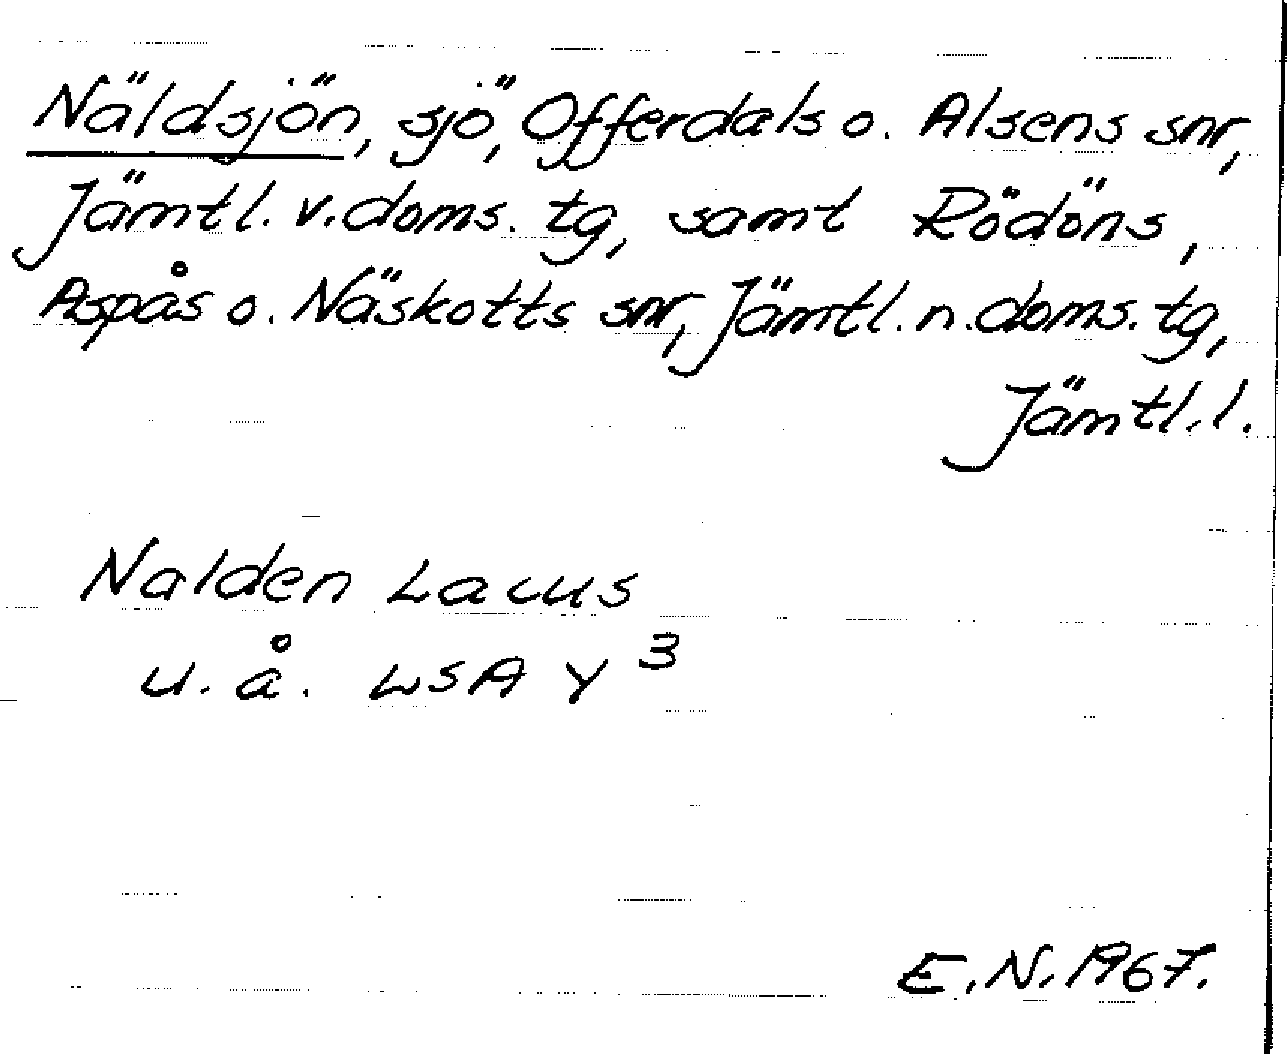 Näldsjön, sjö, Offerdals o. Alsens snr,
Jämtl. v. doms. tg, samt Rödöns,
Aspås o. Näskotts snr, Jämtl. n. doms. tg,
Jämtl. l.
Nalden Lacus
u. å. LSA Y 3
E. N. 1967.